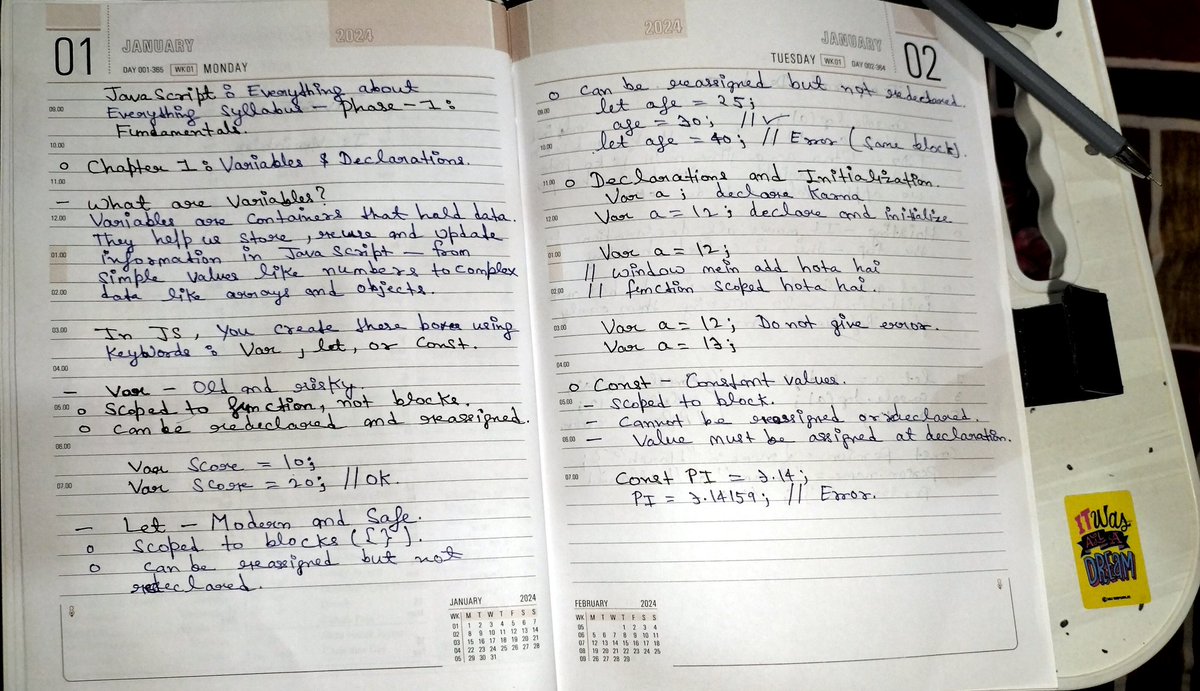 01
JANUARY
2024
DAY 001-365 WK01 MONDAY
JavaScript : Everything about
Everything Syllabus - Phase-1:
Fundamentals.
o Chapter 1 : Variables & Declarations.
- What are Variables?
Variables are Containers that hold data.
They help us store, reuse and update
information in JavaScript - from
Simple values like numbers to complex
data like arrays and objects.
In JS, You create these boxes using
KeyWords : Var, let, or Const.
- Var - Old and risky.
o Scoped to function, not blocks.
o Can be redeclared and reassigned.
Var Score = 10;
Var Score = 20; // OK.
- Let - Modern and Safe.
o Scoped to blocks ({}).
o Can be reassigned but not
redeclared.
08.00
10.00
11.00
12.00
01.00
02.00
03.00
04.00
05.00
06.00
07.00
JANUARY 2024
WK M T W T F S S
01 1 2 3 4 5 6 7
02 8 9 10 11 12 13 14
03 15 16 17 18 19 20 21
04 22 23 24 25 26 27 28
05 29 30 31
2024
JANUARY
02
TUESDAY WK01 DAY 002-364
o Can be reassigned but not redeclared.
let age = 25;
age = 30; // ✓
let age = 40; // Error (Same block).
o Declarations and Initialization.
Var a ; declare Karna
Var a = 12 ; declare and initialize
Var a = 12;
// window mein add hota hai
// function scoped hota hai.
Var a = 12; Do not give error.
Var a = 13;
o Const - Constant values.
- Scoped to block.
- Cannot be reassigned or redeclared.
- Value must be assigned at declaration.
Const PI = 3.14;
PI = 3.14159; // Error.
09.00
10.00
11.00
12.00
01.00
02.00
03.00
04.00
05.00
06.00
07.00
FEBRUARY 2024
WK M T W T F S S
05 1 2 3 4
06 5 6 7 8 9 10 11
07 12 13 14 15 16 17 18
08 19 20 21 22 23 24 25
09 26 27 28 29
IT Was
ALL A
DREAM